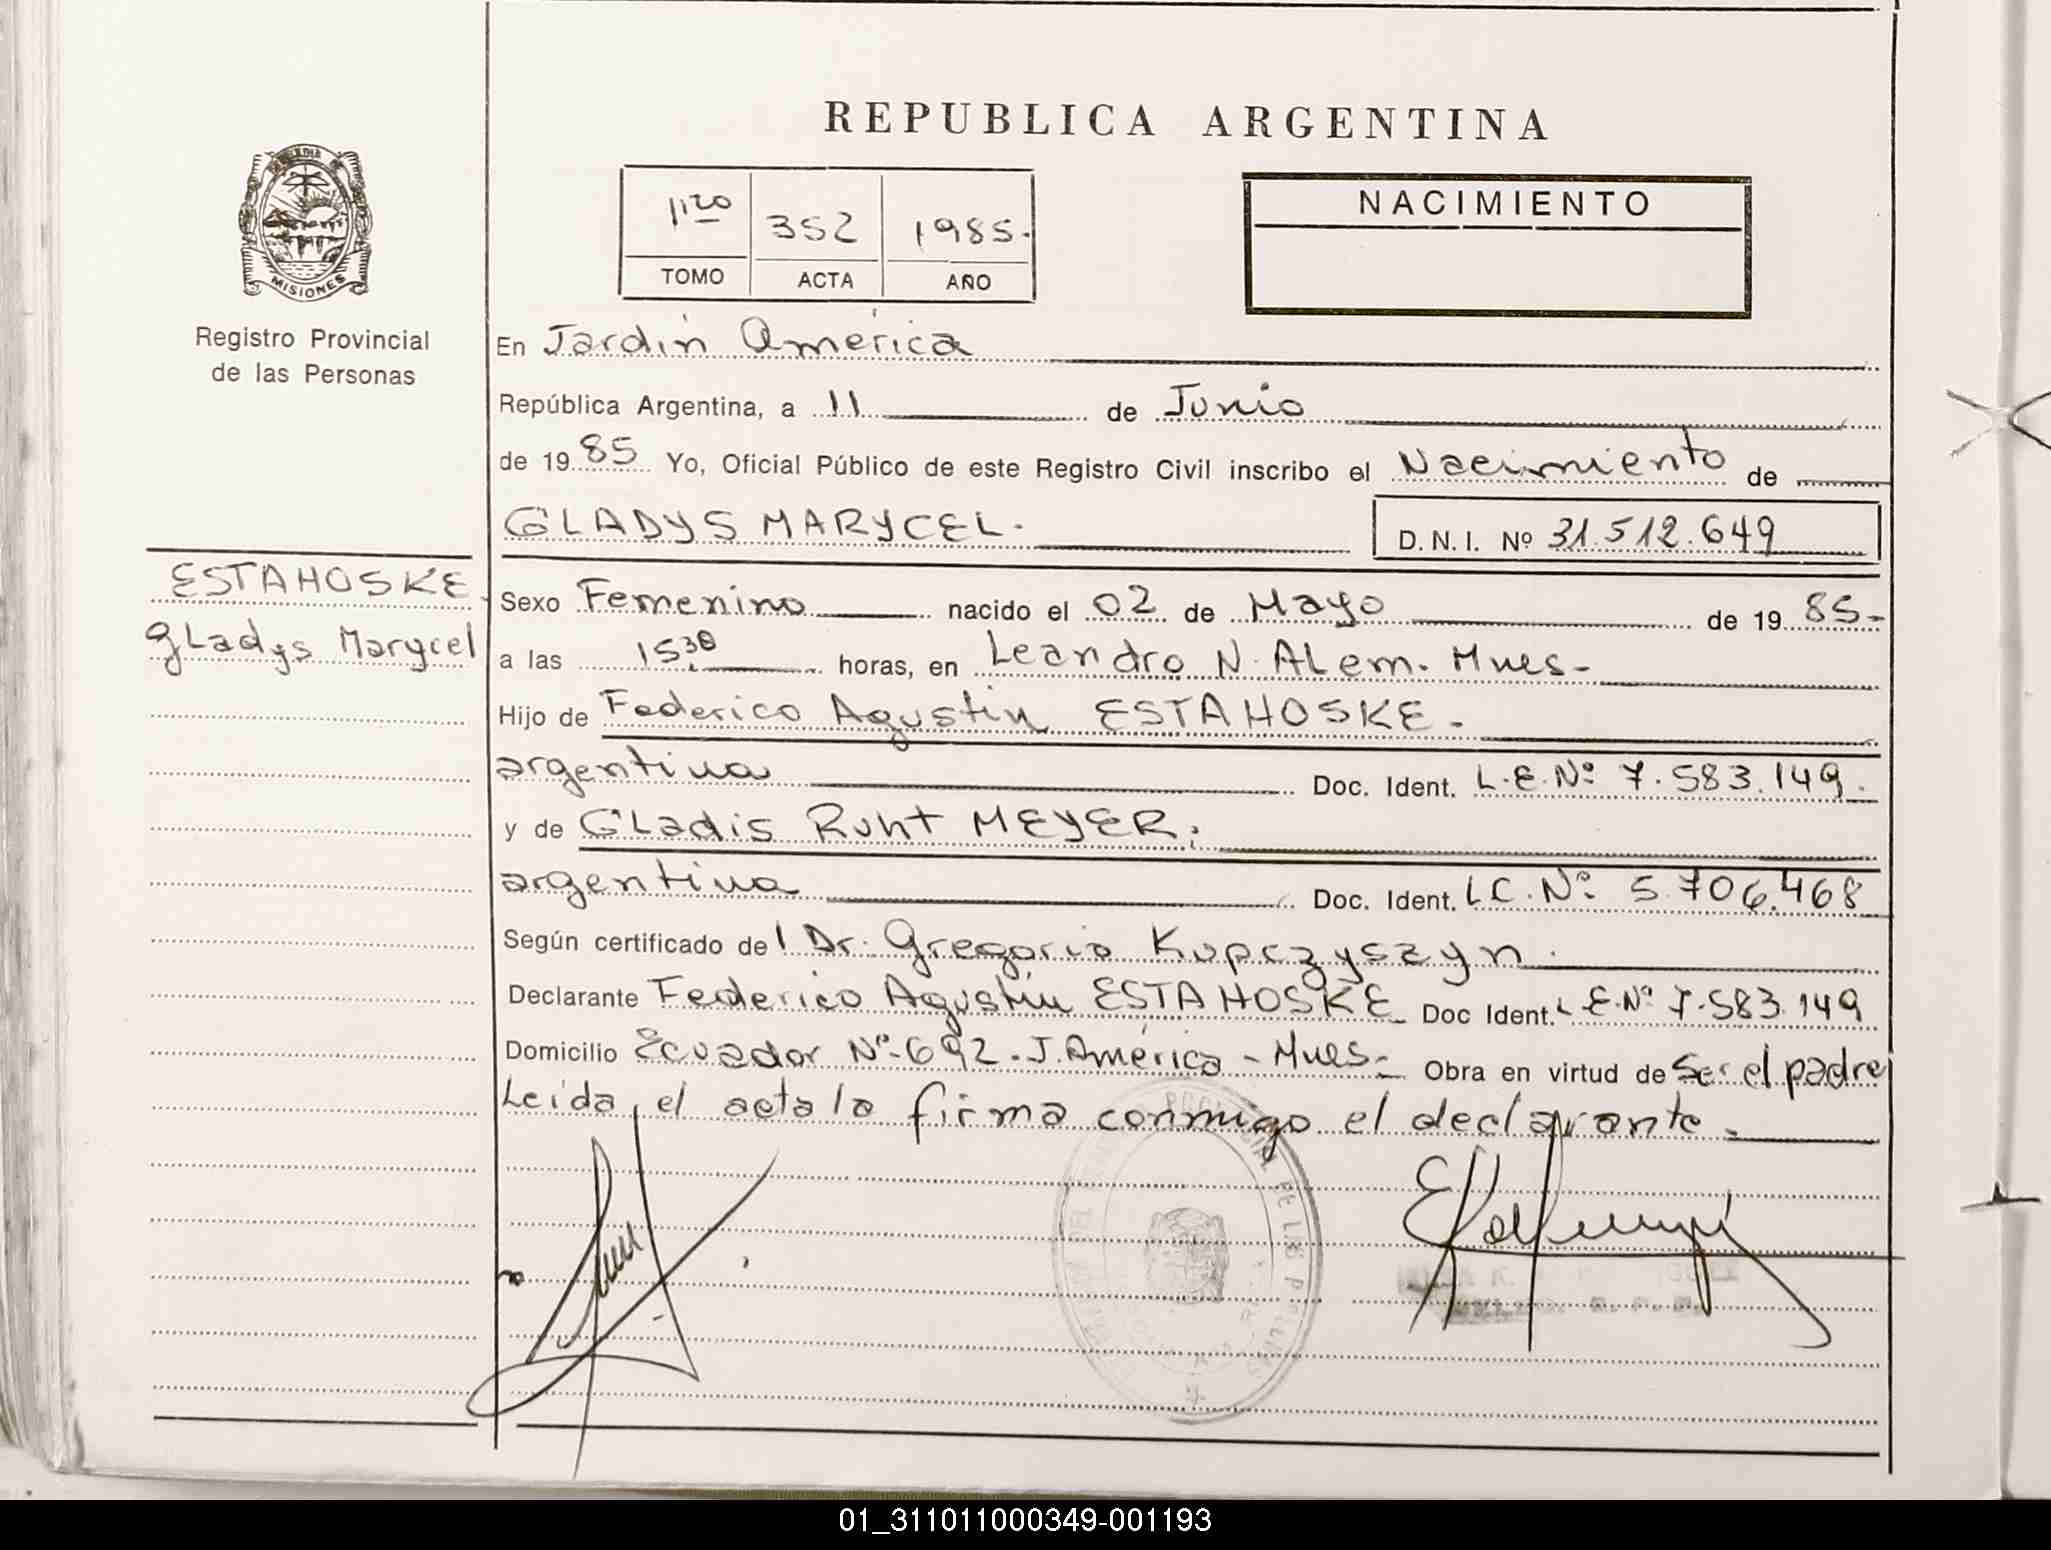 REPUBLICA ARGENTINA
1120 352 1985.
TOMO ACTA AÑO
NACIMIENTO
MISIONES
Registro Provincial
de las Personas
En Jardin América
República Argentina, a 11 de Junio
de 1985 Yo, Oficial Público de este Registro Civil inscribo el Nacimiento de
GLADYS MARYCEL.
D.N.I. Nº 31.512.649
ESTAHOSKE
Gladys Marycel
Sexo Femenino nacido el 02 de Mayo de 1985-
a las 15.30 horas, en Leandro N. ALem. Mnes-
Hijo de Federico Agustin ESTAHOSKE.
argentina Doc. Ident. L.E.Nº 7.583.149.
y de GLadis Ruht MEYER.
argentina Doc. Ident. LC.Nº 5.706.468
Según certificado del Dr. Gregorio Kupczyszyn.
Declarante Federico Agustin ESTAHOSKE Doc Ident. L E.Nº 7.583.149
Domicilio Ecuador Nº-692. J.América - Mnes- Obra en virtud de Ser el padre
Leida el acta la firma conmigo el declarante.
01_311011000349-001193